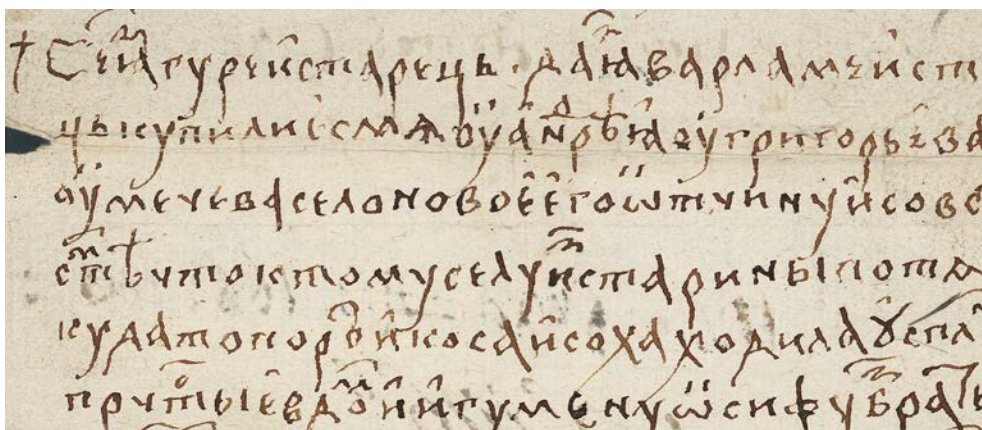 † Се ꙗз гуреи старець да ꙗз варламеи ст
цы купили есмѧ оу андрѣꙗ оу григорьева
оу мечева село новое его ѡтчину и со всѣ
с тѣм что к тому селу из старины потѧ
куда топор и коса и соха ходила оу спа
прчтые в дом и игумену ѡсифу з братьею